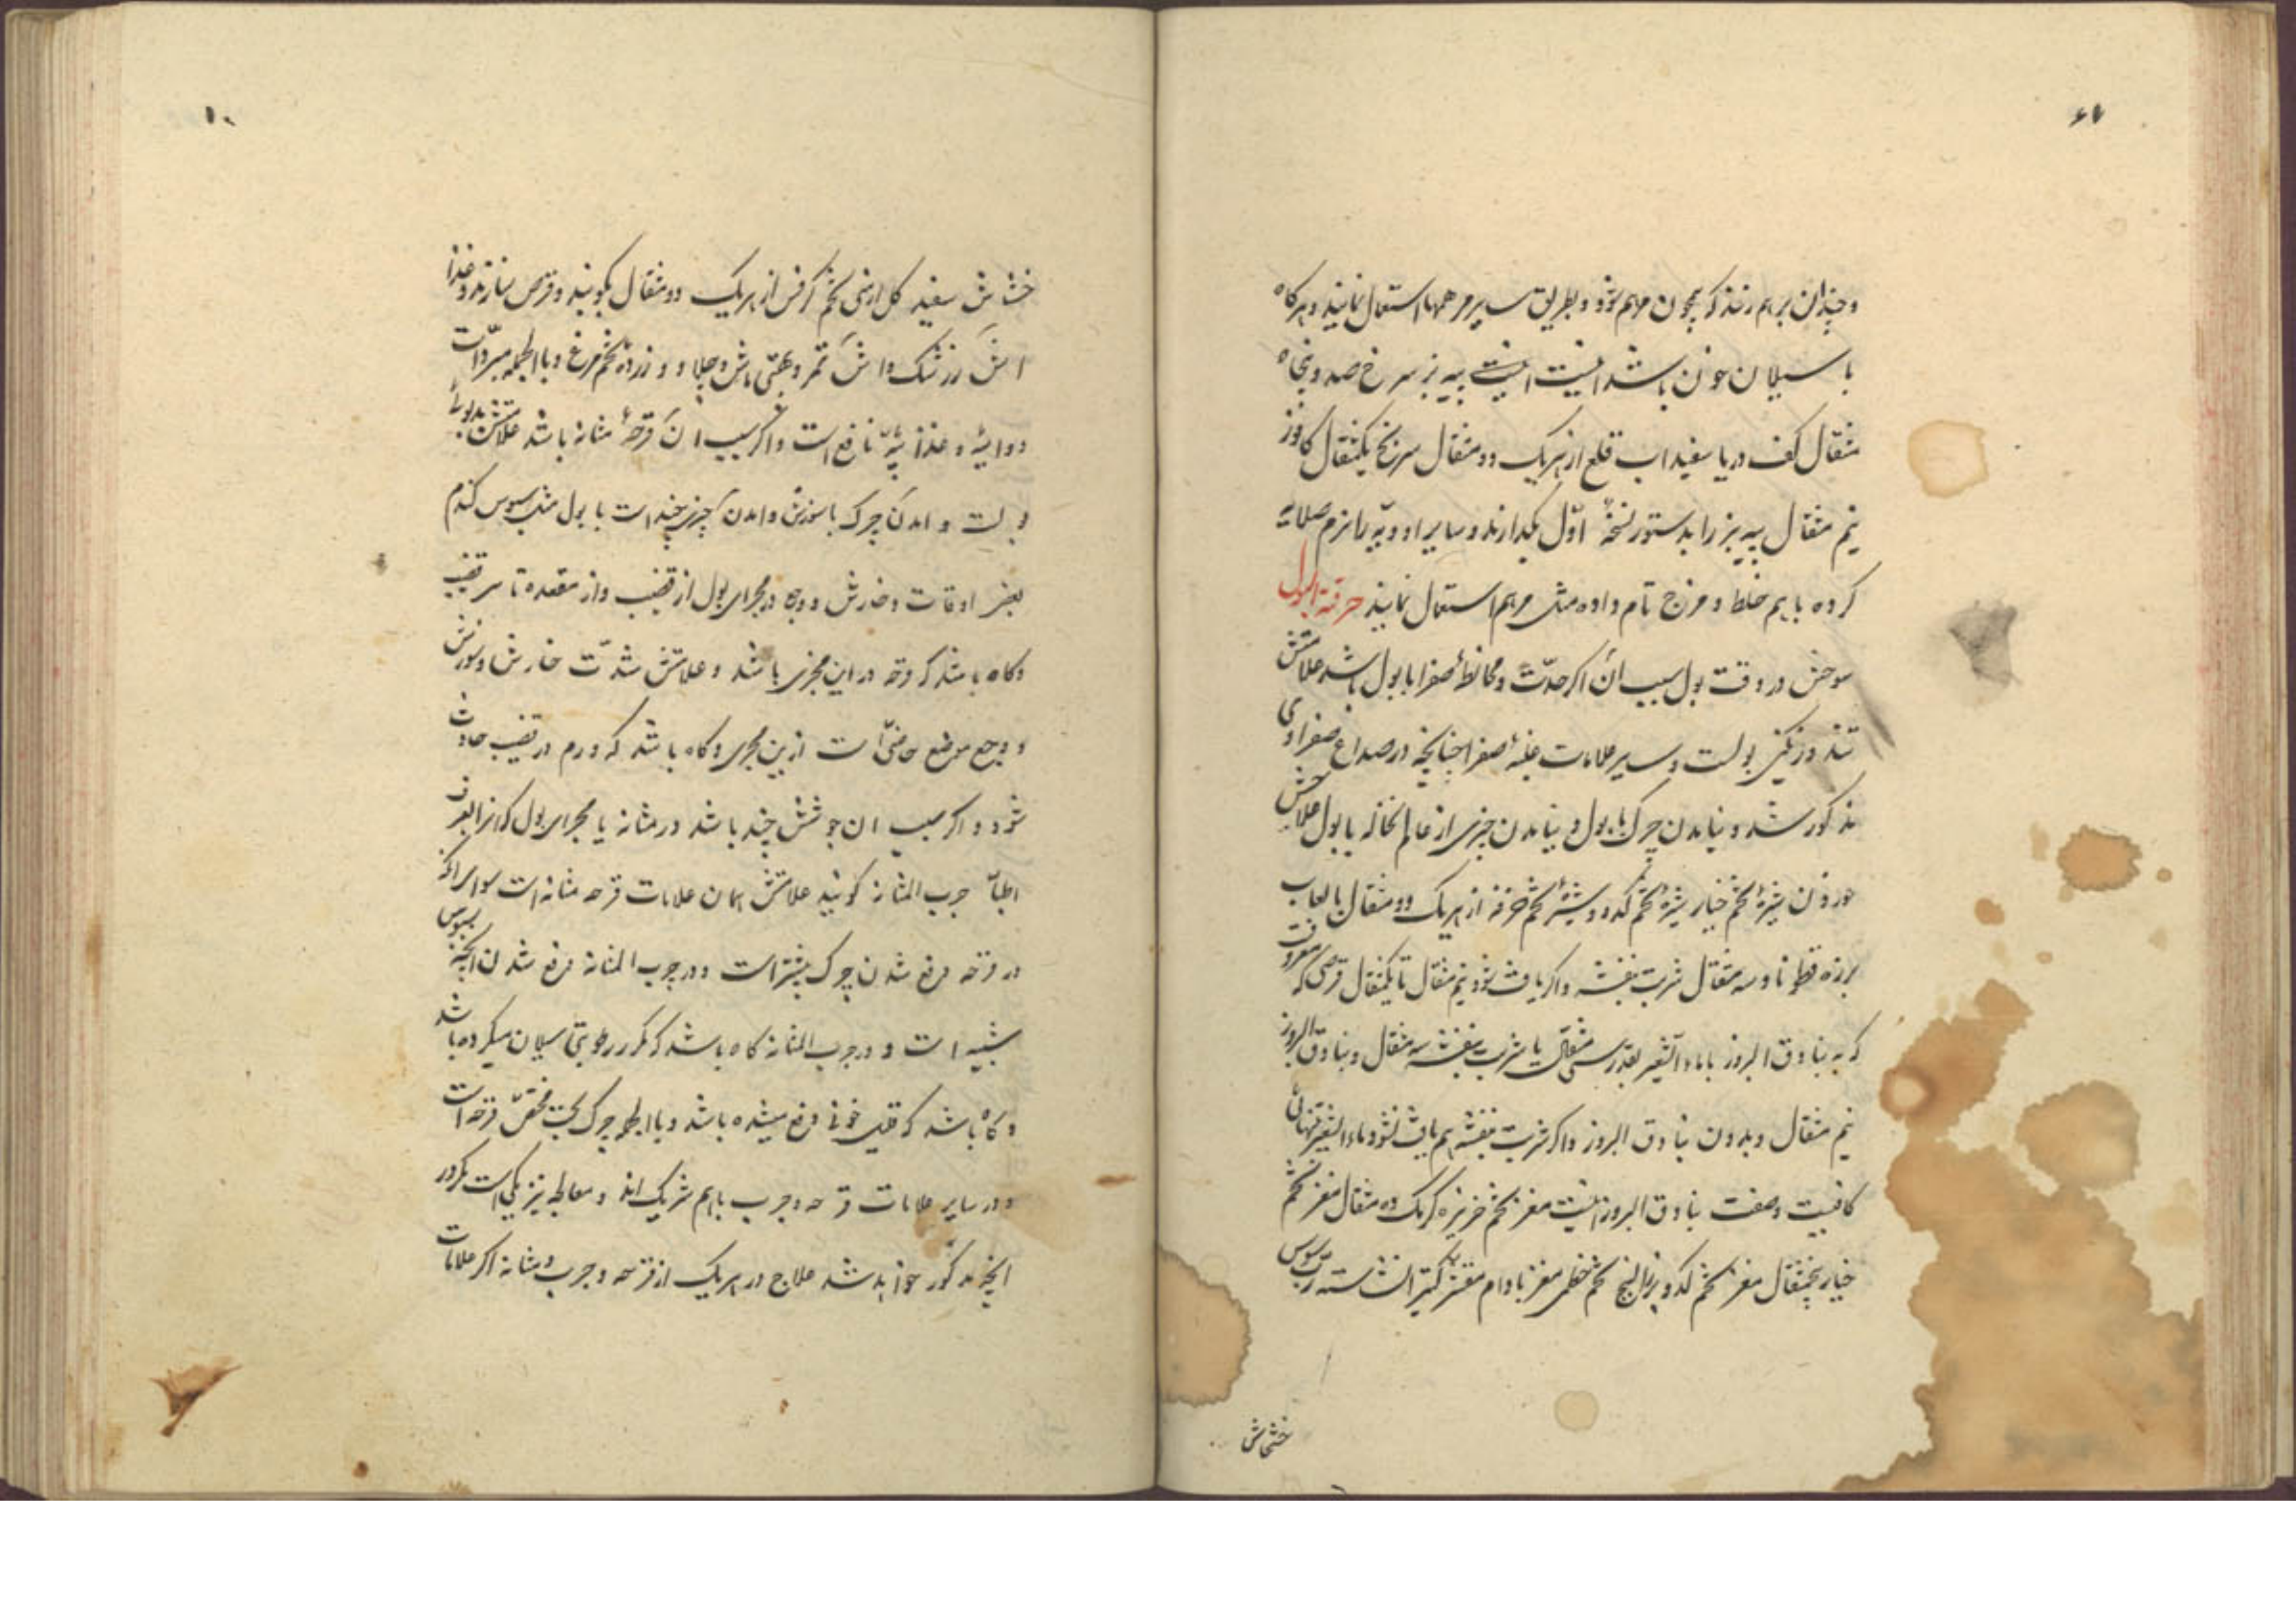 و چندان برهم زنند که همچون مرهم شود و بطریق سایر مرهمها استعمال نمایند و هرکاه
با سیلان خون باشد اینست پیه بز سرخ صد و پنجاه
مثقال کف دریا سفیداب قلع از هر یک دو مثقال سرنج یکمثقال کافور
نیم مثقال پیه بز را بدستور نسخهٔ اوّل بکدازند و سایر ادویّه را نرم صلایه
کرده باهم خلط و مزج تام داده مثل مرهم استعمال نمایند حرقة البول
سوختن در وقت بول سبب آن اکر حدّت و مخالطهٔ صفرا با بول باشد علامتش
تندی و رنکینی بولست و سایر علامات غلبهٔ صفرا چنانچه در صداع صفراوی
مذکور شد و نیامدن چرک با بول و نیامدن چیزی از عالم نخاله با بول علاجش
خوردن شیرهٔ تخم خیار شیرهٔ تخم کدو و شیرهٔ تخم خرفه از هر یک دو مثقال با لعاب
بزره قطونا و سه مثقال شربت بنفشه و اکر یافت شود نیم مثقال تا یکمثقال قرصی که معروفست
که به بنادق البزور باماء الشعیر بقدر سی مثقال با شربت بنفشه سه مثقال و بنادق البزور
نیم مثقال و بدون بنادق البزور و اکر شربت بنفشه هم یافت نشود ماء الشعیر تنهائی
کافیست و صفت بنادق البزور اینست مغز تخم خربزه کرمک ده مثقال مغز تخم
خیار پنجمثقال مغز تخم کدو بزر البنج تخم خطمی مغز بادام مقشر کتیرا نشاسته ربّ سوس
خشخاش
خشخاش سفید کل ارمنی تخم کرفس از هر یک دو مثقال بکوبند و قرص سازند و غذا
اش زرشک و اش تمر و بقیّتی ماش و چلاو و زردهٔ تخم مرغ و باالجمله مبرّدات
دوائیّه و غذائیّه نافع است و اکر سبب آن قرحهٔ مثانه باشد علامتش بدبوئی
بولست و امدن چرک با سوزش و امدن چیزی چند است با بول مثل سبوس کندم
بعضی اوقات و خارش و وجع در مجرای بول از قضیب و از مقعده تا سر قضیب
و کاه باشد که قرحه در این مجری باشد و علامتش شدّت خارش و سوزش
و وجع موضع خاصّی است ازین مجری و کاه باشد که ورم در قضیب حادث
شود و اکر سبب ان جوششی چند باشد در مثانه یا مجرای بول که انرا بعرف
اطبّا جرب المثانه کویند علامتش همان علامات قرحه مثانه است سوای انکه
در قرحه دفع شدن چرک بیشتر است و در جرب المثانه دفع شدن انچه بسبوس
شبیه است و در جرب المثانه کاه باشد که مکرر رطوبتی سیلان میکرده باشد
و کاه باشد که قلیل خونی دفع میشده باشد و باالجمله چرک بحت مختصّ قرحه است
و در سایر علامات قرحه و جرب باهم شریک اند و معالجه نیز یکی است مکرر
انچه مذکور خواهد شد علاج در هر یک از قرحه و جرب و مثانه اکر علامات